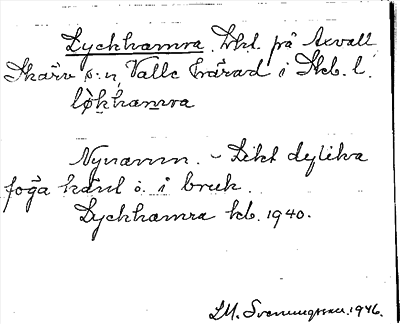 Lyckhamra. Lht. på Axvall,
Skärv s:n, Valle härad i Skb. l.
lø̀k̠hamra
Nynamn. – Likt dylika
föga känt o. i bruk.
Lyckhamra kb. 1940.
I.M. Svenungsson. 1946.